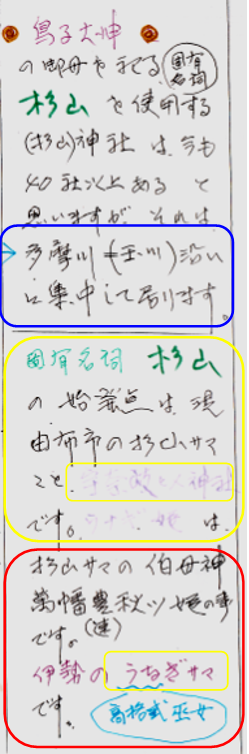 鳥子大神
の御母を示てる 固有名詞
杉山 を使用する
(杉山)神社 は、今も
40社以上あると
思いますが それは、
多摩川 (玉川)沿い
に集中して居ります。
固有名詞 杉山
の 始発点は、現
由布市の杉山サマ
こと
です。 は、
杉山サマの 伯母神
萬幡豊秋ツ姫の事
です。(速)
伊勢の うなぎサマ
です。 高格式巫女